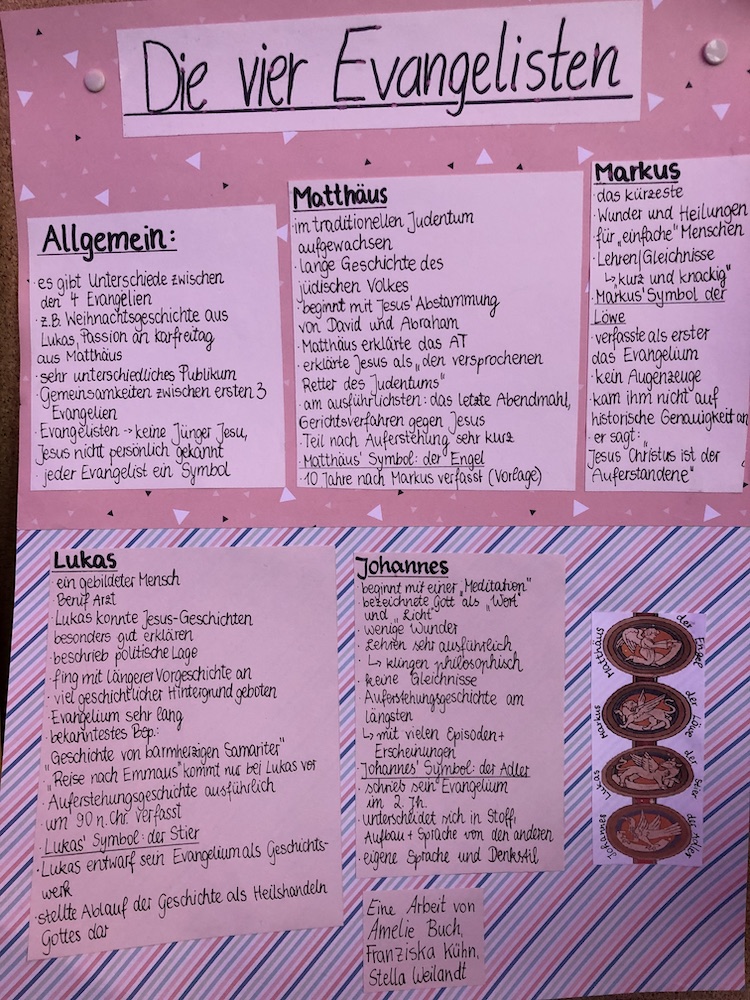 Die vier Evangelisten
Allgemein:
· es gibt Unterschiede zwischen
den 4 Evangelien
· z.B. Weihnachtsgeschichte aus
Lukas, Passion an Karfreitag
aus Matthäus
· sehr unterschiedliches Publikum
· Gemeinsamkeiten zwischen ersten 3
Evangelien
· Evangelisten → keine Jünger Jesu,
Jesus nicht persönlich gekannt
· jeder Evangelist ein Symbol
Matthäus
· im traditionellen Judentum
aufgewachsen
· lange Geschichte des
jüdischen Volkes
· beginnt mit Jesus' Abstammung
von David und Abraham
· Matthäus erklärte das AT
· erklärte Jesus als „den versprochenen
Retter des Judentums"
· am ausführlichsten: das letzte Abendmahl,
Gerichtsverfahren gegen Jesus
· Teil nach Auferstehung sehr kurz
· Matthäus' Symbol: der Engel
· 10 Jahre nach Markus verfasst (Vorlage)
Markus
· das kürzeste
· Wunder und Heilungen
· für „einfache" Menschen
· Lehren/Gleichnisse
↳ „kurz und knackig"
· Markus' Symbol der
Löwe
· verfasste als erster
das Evangelium
· kein Augenzeuge
· kam ihm nicht auf
historische Genauigkeit an
· er sagt: „
Jesus Christus ist der
Auferstandene"
Lukas
· ein gebildeter Mensch
· Beruf Arzt
· Lukas konnte Jesus-Geschichten
besonders gut erklären
· beschrieb politische Lage
· fing mit längerer Vorgeschichte an
· viel geschichtlicher Hintergrund geboten
· Evangelium sehr lang
· bekanntestes Bsp.:
„Geschichte von barmherzigen Samariter"
· „Reise nach Emmaus" kommt nur bei Lukas vor
· Auferstehungsgeschichte ausführlich
· um 90 n. Chr. verfasst
· Lukas' Symbol: der Stier
· Lukas entwarf sein Evangelium als Geschichts-
werk
· stellte Ablauf der Geschichte als Heilshandeln
Gottes dar
Johannes
· beginnt mit einer „Meditation"
· bezeichnete Gott als „Wort"
und „Licht"
· wenige Wunder
· Lehren sehr ausführlich
↳ klingen philosophisch
· keine Gleichnisse
· Auferstehungsgeschichte am
längsten
↳ mit vielen Episoden +
Erscheinungen
· Johannes' Symbol: der Adler
· schrieb sein Evangelium
im 2. Jh.
· unterscheidet sich in Stoff,
Aufbau + Sprache von den anderen
· eigene Sprache und Denkstil
Matthäus der Engel
Markus der Löwe
Lukas der Stier
Johannes der Adler
Eine Arbeit von
Amelie Buch,
Franziska Kühn,
Stella Weilandt